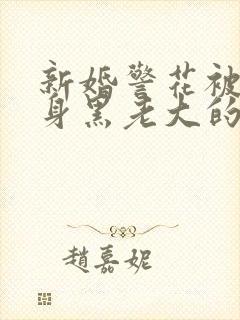 新婚警花被
身黑老大的
趙嘉妮